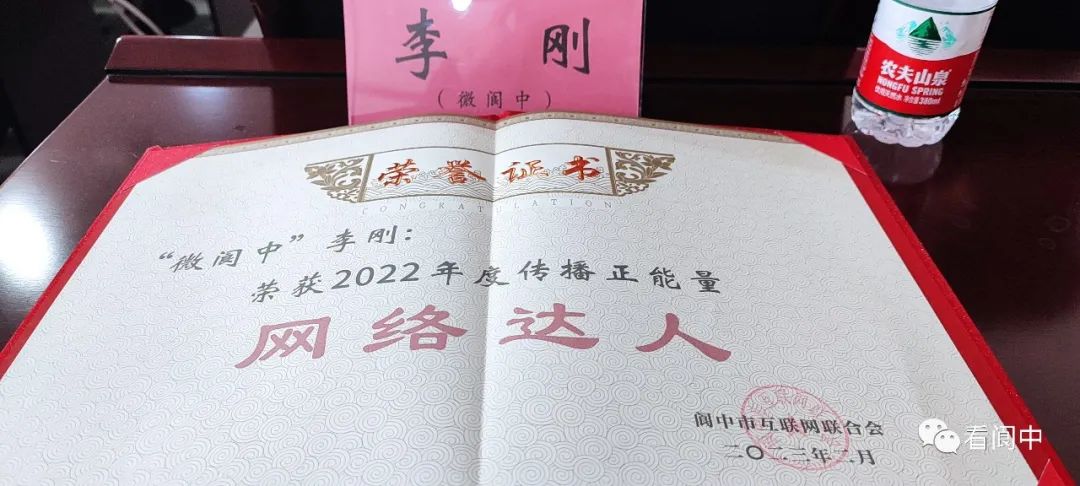 李 刚
（微阆中）
农夫山泉
NONGFU SPRING
饮用天然水 净含量380ml
荣誉证书
CONGRATULATION
“微阆中”李刚：
荣获2022年度传播正能量
网络达人
阆中市互联网联合会
二〇二三年二月
看阆中